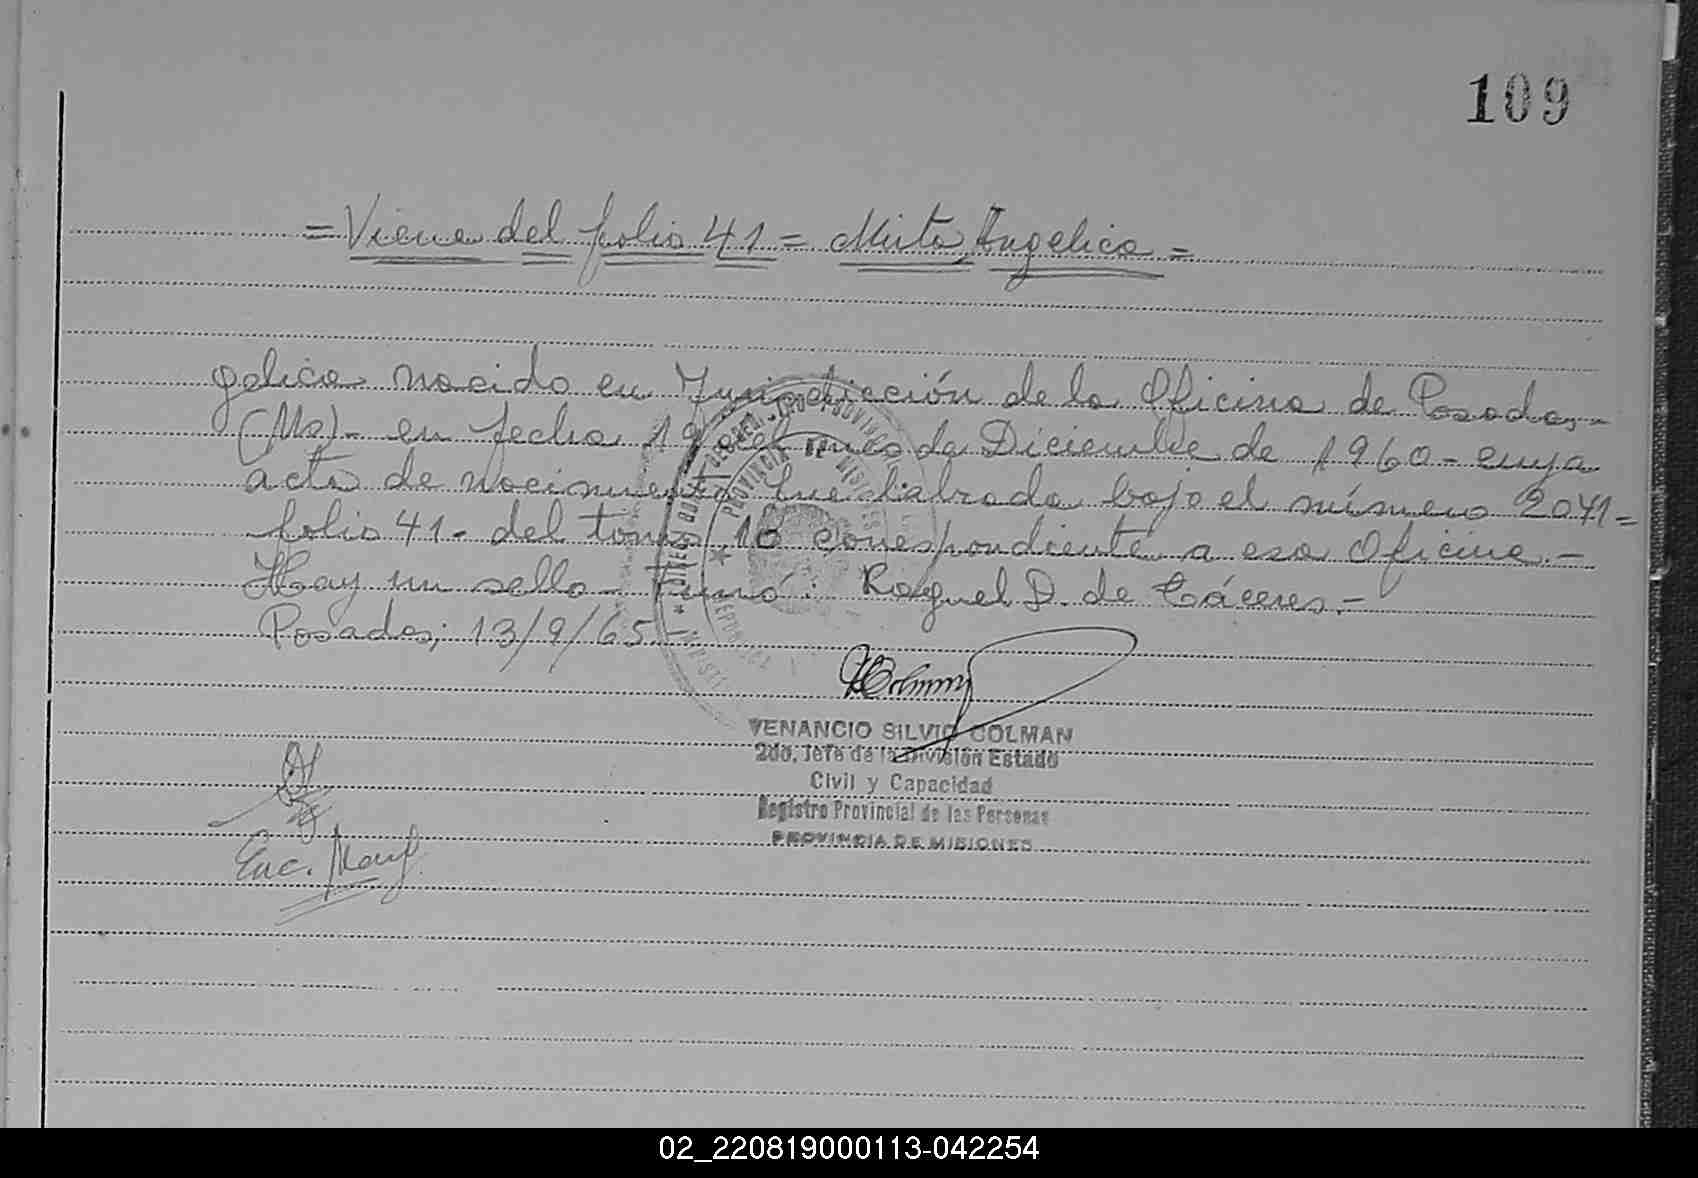 109
= Viene del folio 41 = Mirta Angelica =
gelica nacida en Jurisdicción de la Oficina de Posadas-
(Ms)- en fecha 19 del mes de Diciembre de 1960 - cuya
acta de nacimiento fue labrada bajo el número 2071=
folio 41- del tomo 10 correspondiente a esa Oficina.-
Hay un sello - Firmó: Raquel D. de Cáceres.-
Posadas; 13/9/65.-
PROVINCIA
VENANCIO SILVIO COLMAN
2do. Jefe de la División Estado
Civil y Capacidad
Registro Provincial de las Personas
PROVINCIA DE MISIONES
Enc.
02_220819000113-042254